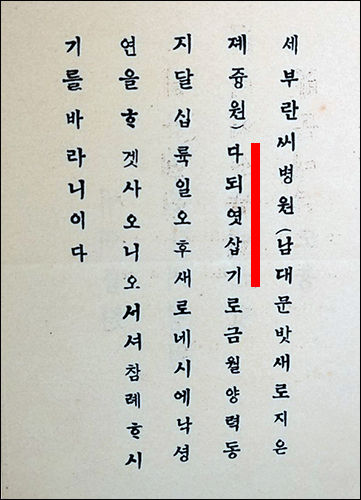 세부란씨병원(남대문밧새로지은
졔즁원)다되엿삽기로금월양력동
지달십륙일오후새로네시에낙셩
연을ᄒᆞ겟사오니오서셔참례ᄒᆞ시
기를바라니이다